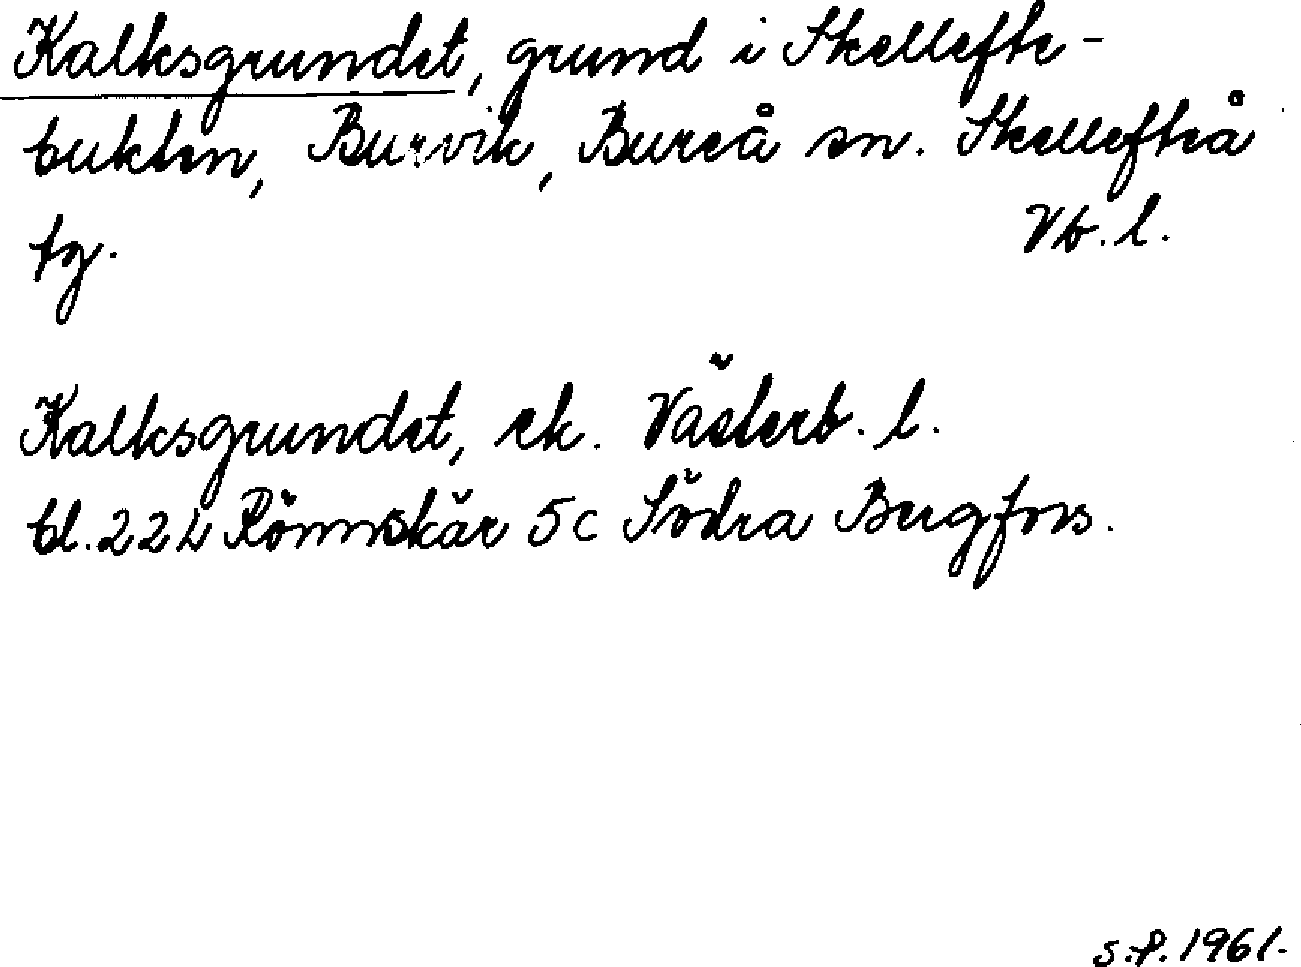 Kalksgrundet, grund i Skellefte-
bukten, Burvik, Bureå sn. Skellefteå
tg. Vb. l.
Kalksgrundet, ek. Västerb. l.
bl. 22L Rönnskär 5c Södra Bergfors.
S.P. 1961.